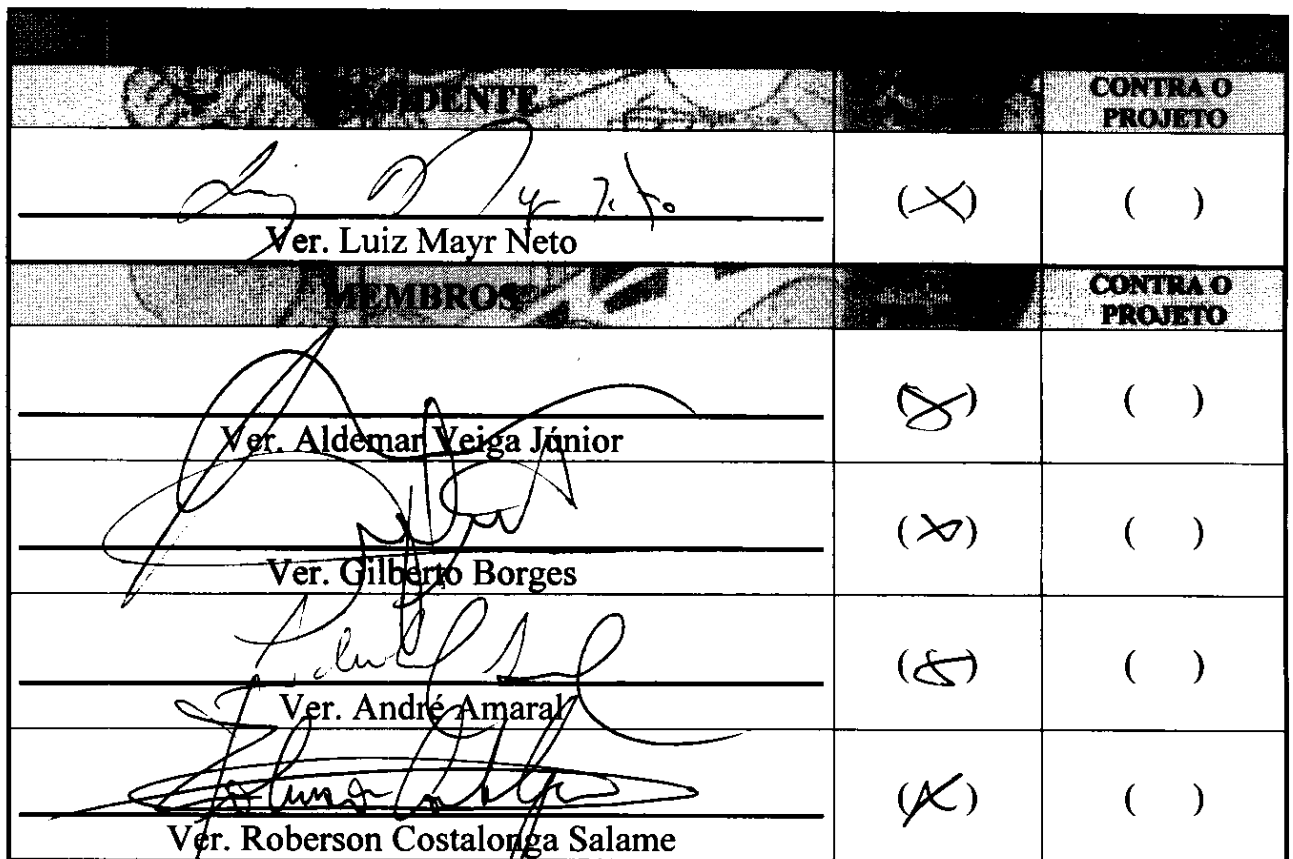 PRESIDENTE
CONTRA O
PROJETO
(X) ( )
Ver. Luiz Mayr Neto
MEMBROS
CONTRA O
PROJETO
(X) ( )
Ver. Aldemar Veiga Júnior
(X) ( )
Ver. Gilberto Borges
(X) ( )
Ver. André Amaral
(X) ( )
Ver. Roberson Costalonga Salame